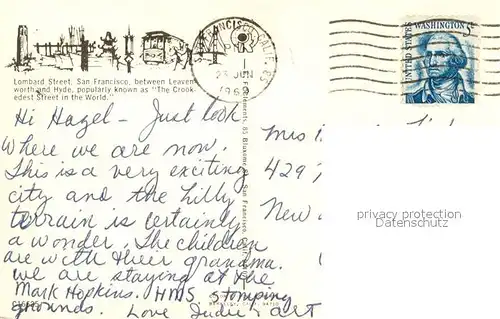 Lombard Street, San Francisco, between Leaven-
worth and Hyde, popularly known as "The Crook-
edest Street in the World."
PM
23 JUN
1969
UNITED STATES
WASHINGTON 5¢
Hi Hazel - Just look
where we are now.
This is a very exciting
city and the hilly
terrain is certainly
a wonder. The children
are with their grandma.
we are staying at the
Mark Hopkins. HMS stomping
grounds. Love Judie & art
Mrs
429
New
privacy protection
Datenschutz